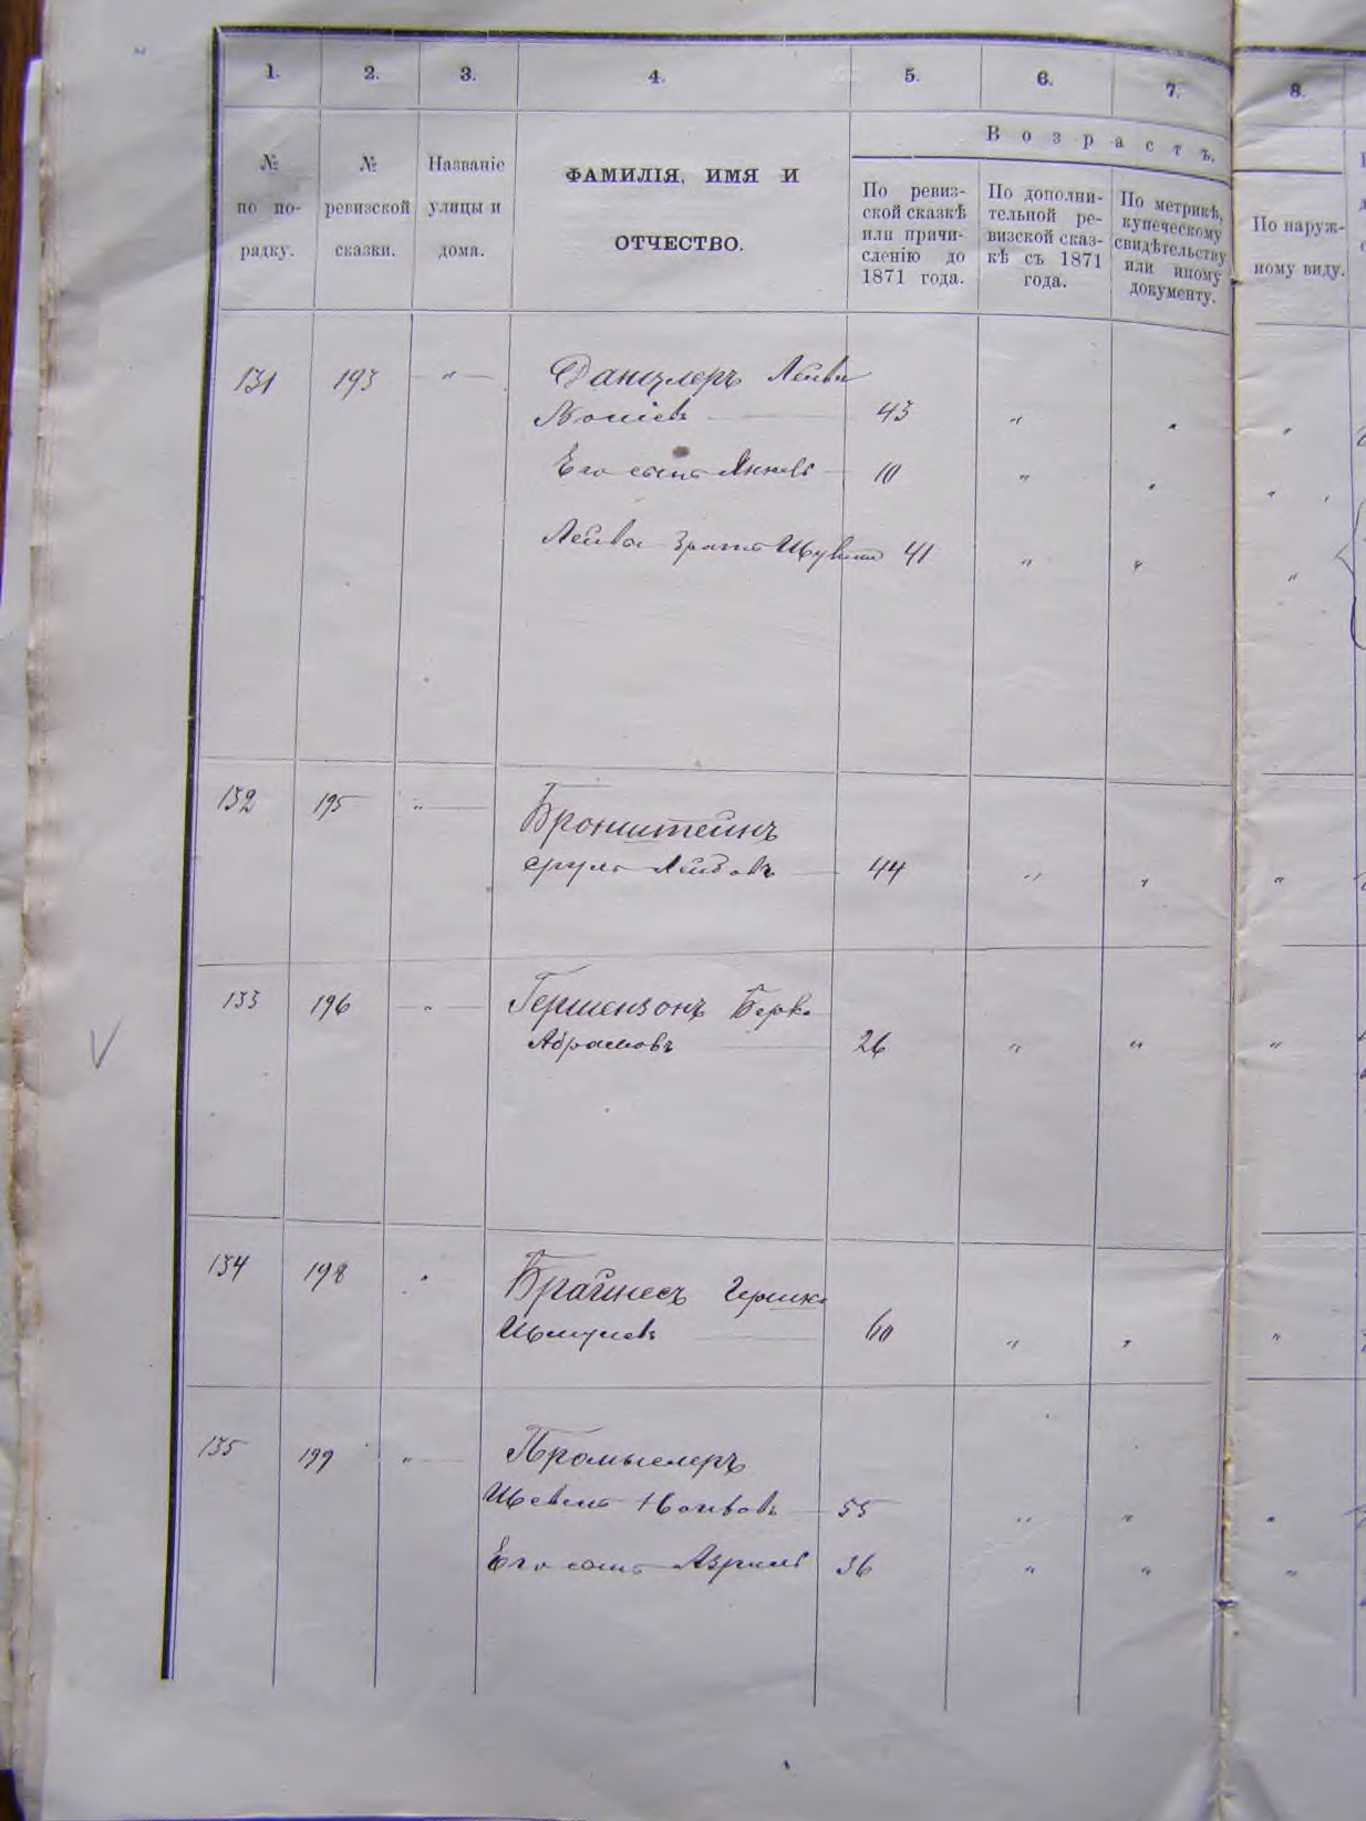 1. 2. 3. 4. 5. 6. 7. 8.
Возрастъ.
№ по по-
рядку.
№ ревизской
сказки.
Названіе
улицы и
дома.
ФАМИЛІЯ, ИМЯ И
ОТЧЕСТВО.
По ревиз-
ской сказкѣ
или причи-
сленію до
1871 года.
По дополни-
тельной ре-
визской сказ-
кѣ съ 1871
года.
По метрикѣ,
купеческому
свидѣтельству
или иному
документу.
По наруж-
ному виду.
131 193 — " — Данцлеръ Лейба
43 " " "
Его сынъ Янкель 10 " " "
Лейба братъ 41 " " "
132 195 " — Бронштейнъ
Сруль Лейбовъ 44 " " "
133 196 — " — Гершензонъ Берко
Абрамовъ 26 " " "
134 198 " Брайнесъ Гершко
Шмулевъ 60 " " "
135 199 " — Промыслеръ
55 " " "
Его сынъ Азриль 36 " " "